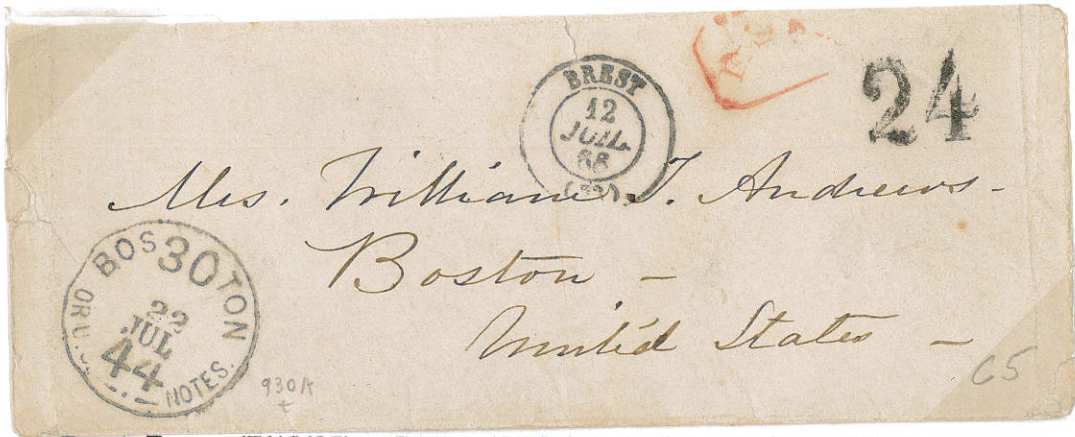 BREST
12
JUIL.
68
24
Mrs. William T. Andrews -
Boston -
United States -
BOSTON
30
22
JUL
44
OR U.
NOTES.
930K
t
C5